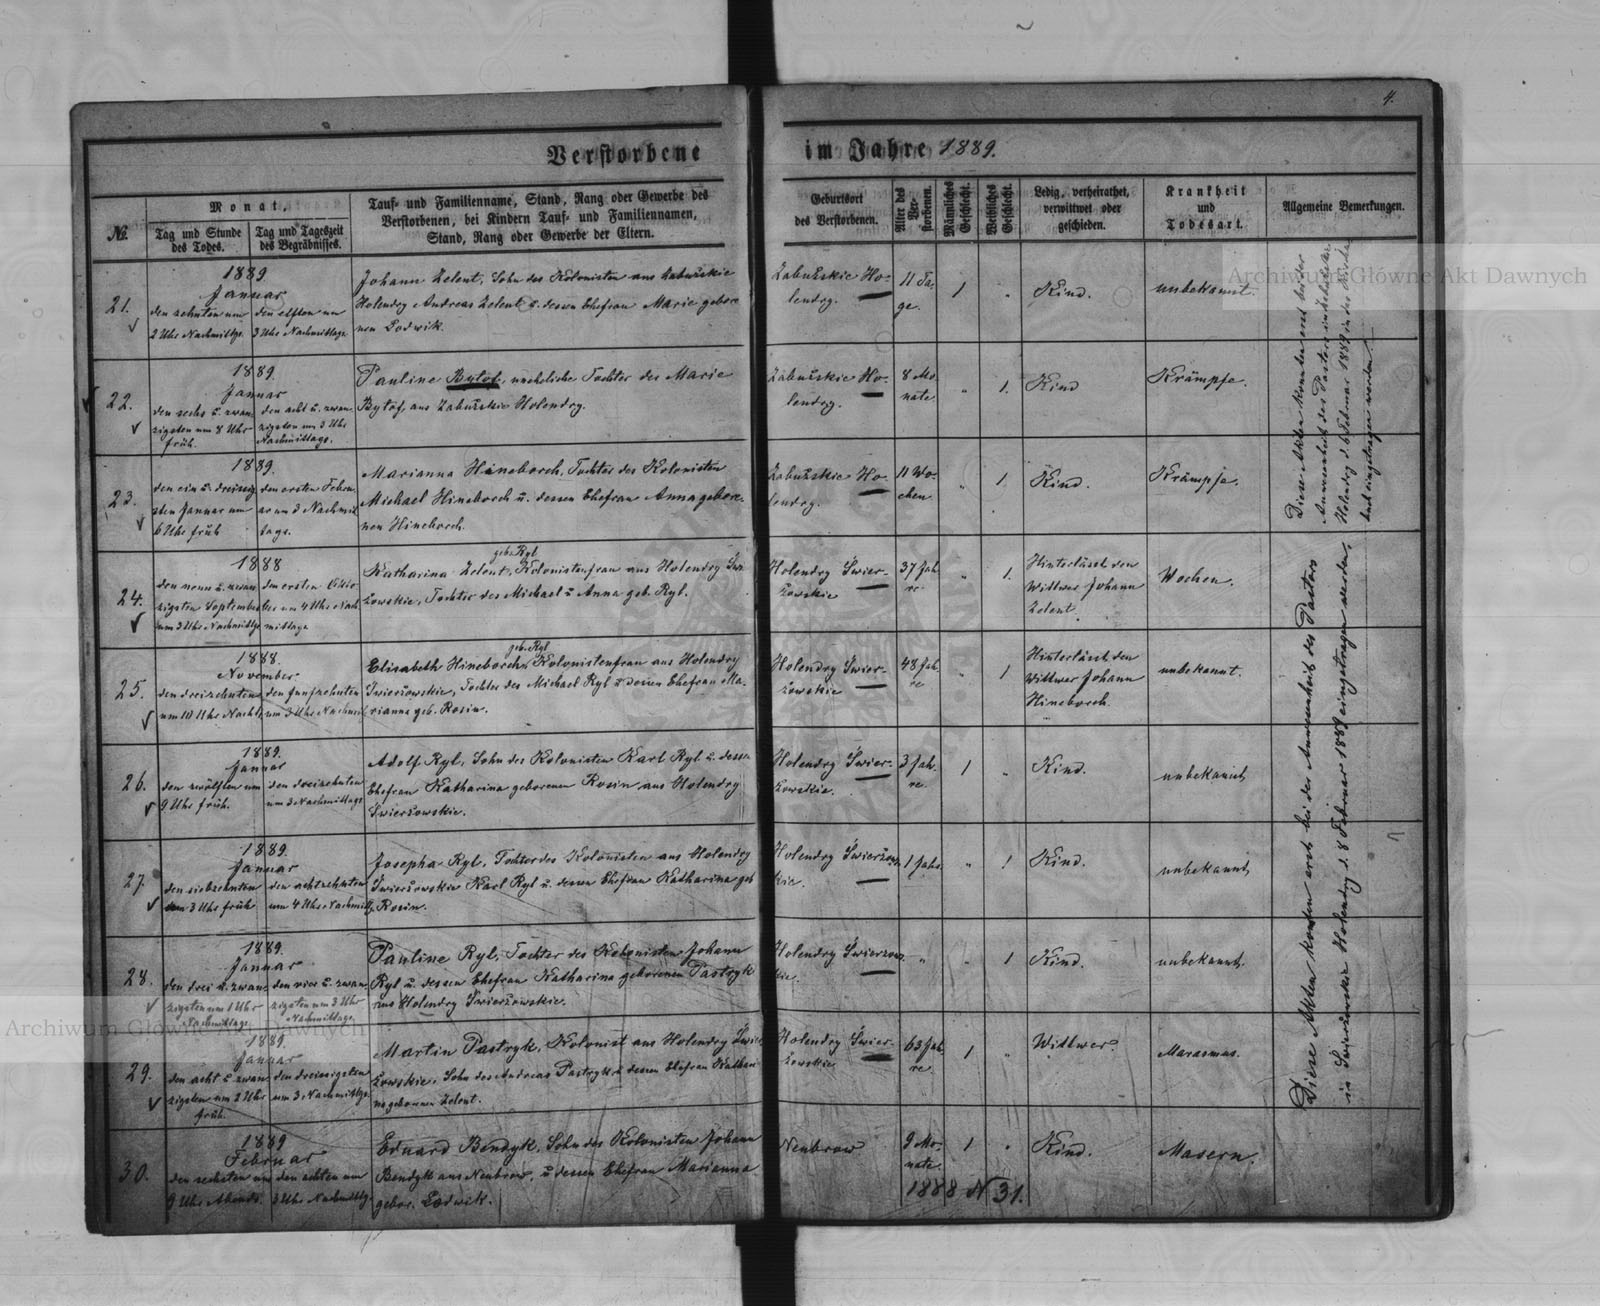 4.
Verstorbene im Jahre 1889.
№.
Monat,
Tag und Stunde des Todes.
Tag und Tageszeit des Begräbnisses.
Tauf- und Familienname, Stand, Rang oder Gewerbe des
Verstorbenen, bei Kindern Tauf- und Familiennamen,
Stand, Rang oder Gewerbe der Eltern.
Geburtsort
des Verstorbenen.
Alter des Verstorbenen.
Männliches Geschlecht.
Weibliches Geschlecht.
Ledig, verheirathet,
verwittwet oder
geschieden.
Krankheit
und
Todesart.
Allgemeine Bemerkungen.
21.
1889
Januar
den zehnten um
2 Uhr Nachmittgs.
den elften um
3 Uhr Nachmittags
Johann Zelent, Sohn des Kolonisten aus Zabużskie
Holendry Andreas Zelent u. dessen Ehefrau Marie gebore
nen Lodwik.
Zabużskie Ho-
lendry.
11 Ta-
ge.
1
"
Kind.
unbekannt
22.
1889.
Januar
den sechs u. zwan
zigsten um 8 Uhr
früh.
den acht u. zwan
zigsten um 3 Uhr
Nachmittags.
Pauline Bytof, uneheliche Tochter der Marie
Bytof, aus Zabużskie Holendry.
Zabużskie Ho-
lendry.
8 Mo
nate
"
1.
Kind
Krämpfe.
23.
1889.
den ein u. dreissig
sten Januar um
6 Uhr früh
den ersten Febru
ar um 3 Nachmit
tags.
Marianna Hineborch, Tochter des Kolonisten
Michael Hineborch u. dessen Ehefrau Anna gebore-
nen Hineborch.
Zabużskie Ho-
lendry.
11 Wo-
chen
"
1
Kind.
Krämpfe.
24.
1888
den neun u. zwan
zigsten September
um 3 Uhr Nachmittgs
den ersten Okto
ber um 4 Uhr Nach
mittags
geb. Ryl
Katharina Zelent, Kolonistenfrau aus Holendry Świer
żowskie, Tochter des Michael u Anna geb. Ryl.
Holendry Świer-
żowskie
37 Jah
re
"
1.
Hinterlässt den
Wittwer Johann
Zelent.
Wochen.
25.
1888.
November
den dreizehnten
um 10 Uhr Nachts
den funfzehnten
um 3 Uhr Nachmit
geb. Ryl
Elisabeth Hineborch, Kolonistenfrau aus Holendry
Świerżowskie, Tochter des Michael Ryl u dessen Ehefrau Ma-
rianna geb. Rosin.
Holendry Świer-
żowskie
48 Jah
re
"
1
Hinterlässt den
Wittwer Johann
Hineborch.
unbekannt.
26.
1889.
Januar
den zwölften um
9 Uhr früh.
den dreizehnten
um 3 Nachmittags
Adolf Ryl, Sohn des Kolonisten Karl Ryl u. dessen
Ehefrau Katharina geborenen Rosin aus Holendry
Świerżowskie.
Holendry Świer-
żowskie.
3 Jah-
re
1
"
Kind.
unbekannt
27.
1889.
Januar
den siebzehnten
um 3 Uhr früh
den achtzehnten
um 4 Uhr Nachmittg.
Josepha Ryl, Tochter des Kolonisten aus Holendry
Świerżowskie Karl Ryl u. dessen Ehefrau Katharina geb
Rosin.
Holendry Świerżows
kie.
1 Jahr
"
1
Kind.
unbekannt
28.
1889.
Januar
den drei u. zwan
zigsten um 1 Uhr
Nachmittags.
den vier u. zwan
zigsten um 3 Uhr
Nachmittags.
Pauline Ryl, Tochter des Kolonisten Johann
Ryl u. dessen Ehefrau Katharina geborenen Pastryk
aus Holendry Świerżowskie.
Holendry Świerżows
kie.
"
"
1
Kind.
unbekannt.
29.
1889.
Januar
den acht u. zwan
zigsten um 2 Uhr
früh.
den dreissigsten
um 3 Nachmittgs.
Martin Pastryk, Kolonist aus Holendry Świer
żowskie, Sohn des Andreas Pastryk u dessen Ehefrau Kathari
na geborenen Zelent.
Holendry Świer-
żowskie
63 Jah
re
1
"
Wittwer.
Marasmus.
30.
1889
Februar
den sechsten um
9 Uhr Abends.
den achten um
3 Uhr Nachmittg.
Eduard Bendyk, Sohn des Kolonisten Johann
Bendyk aus Neubrow, u dessen Ehefrau Marianna
gebor. Lodwik.
Neubrow
9 Mo-
nate
1
"
Kind.
Masern.
1888 N 31.
Diese Akten konnten erst bei der
Anwesenheit des Pastors in Zabużskie
Holendry d. 6 Februar 1889 in das Kirchen
buch eingetragen werden.
Diese Akten konten erst bei der Anwesenheit des Pastors
in Świerżowskie Holendry d. 8 Februar 1889 eingetragen werden.
Archiwum Główne Akt Dawnych
Archiwum Główne Akt Dawnych